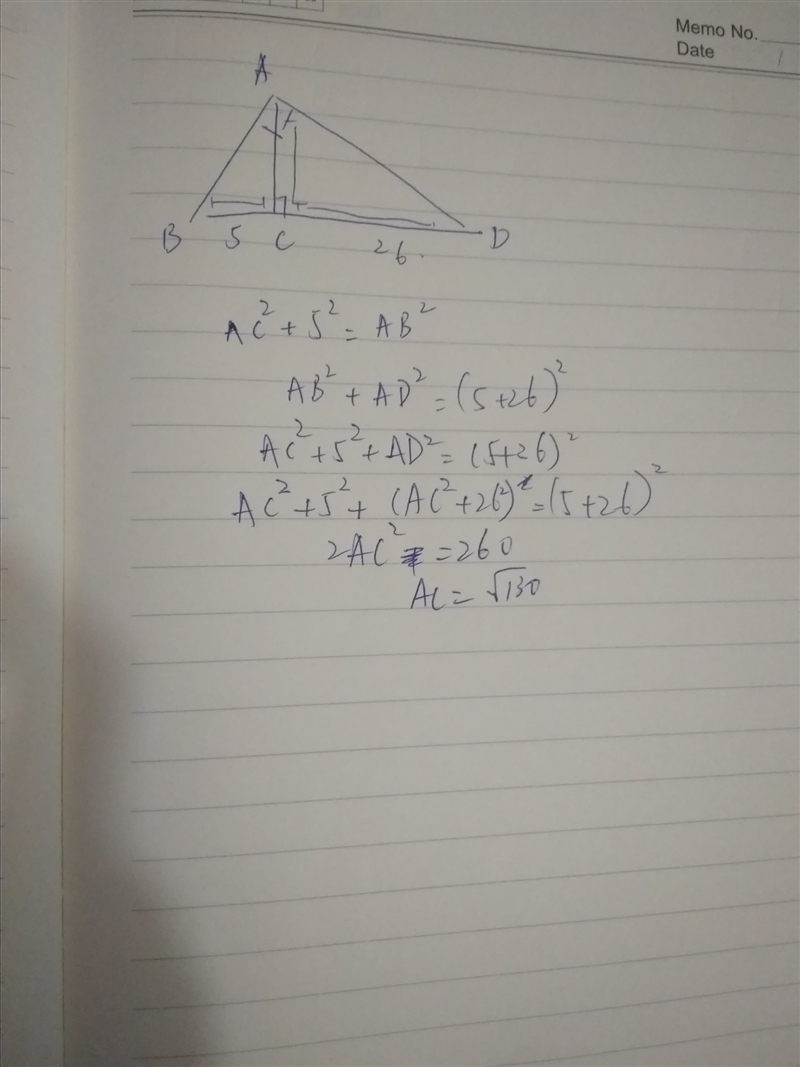 Memo No.
Date
A
B 5 C 26 D
AC² + 5² = AB²
AB² + AD² = (5+26)²
AC² + 5² + AD² = (5+26)²
AC² + 5² + (AC² + 26²) = (5+26)²
2AC² = 260
AC = √130